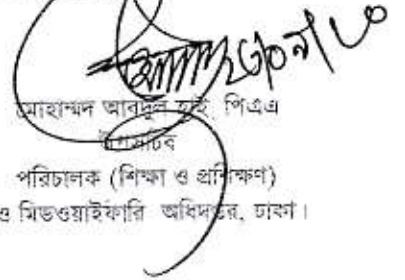 মোহাম্মদ আবদুল হাই, পিএএ
উপসচিব
পরিচালক (শিক্ষা ও প্রশিক্ষণ)
ও মিডওয়াইফারি অধিদপ্তর, ঢাকা।